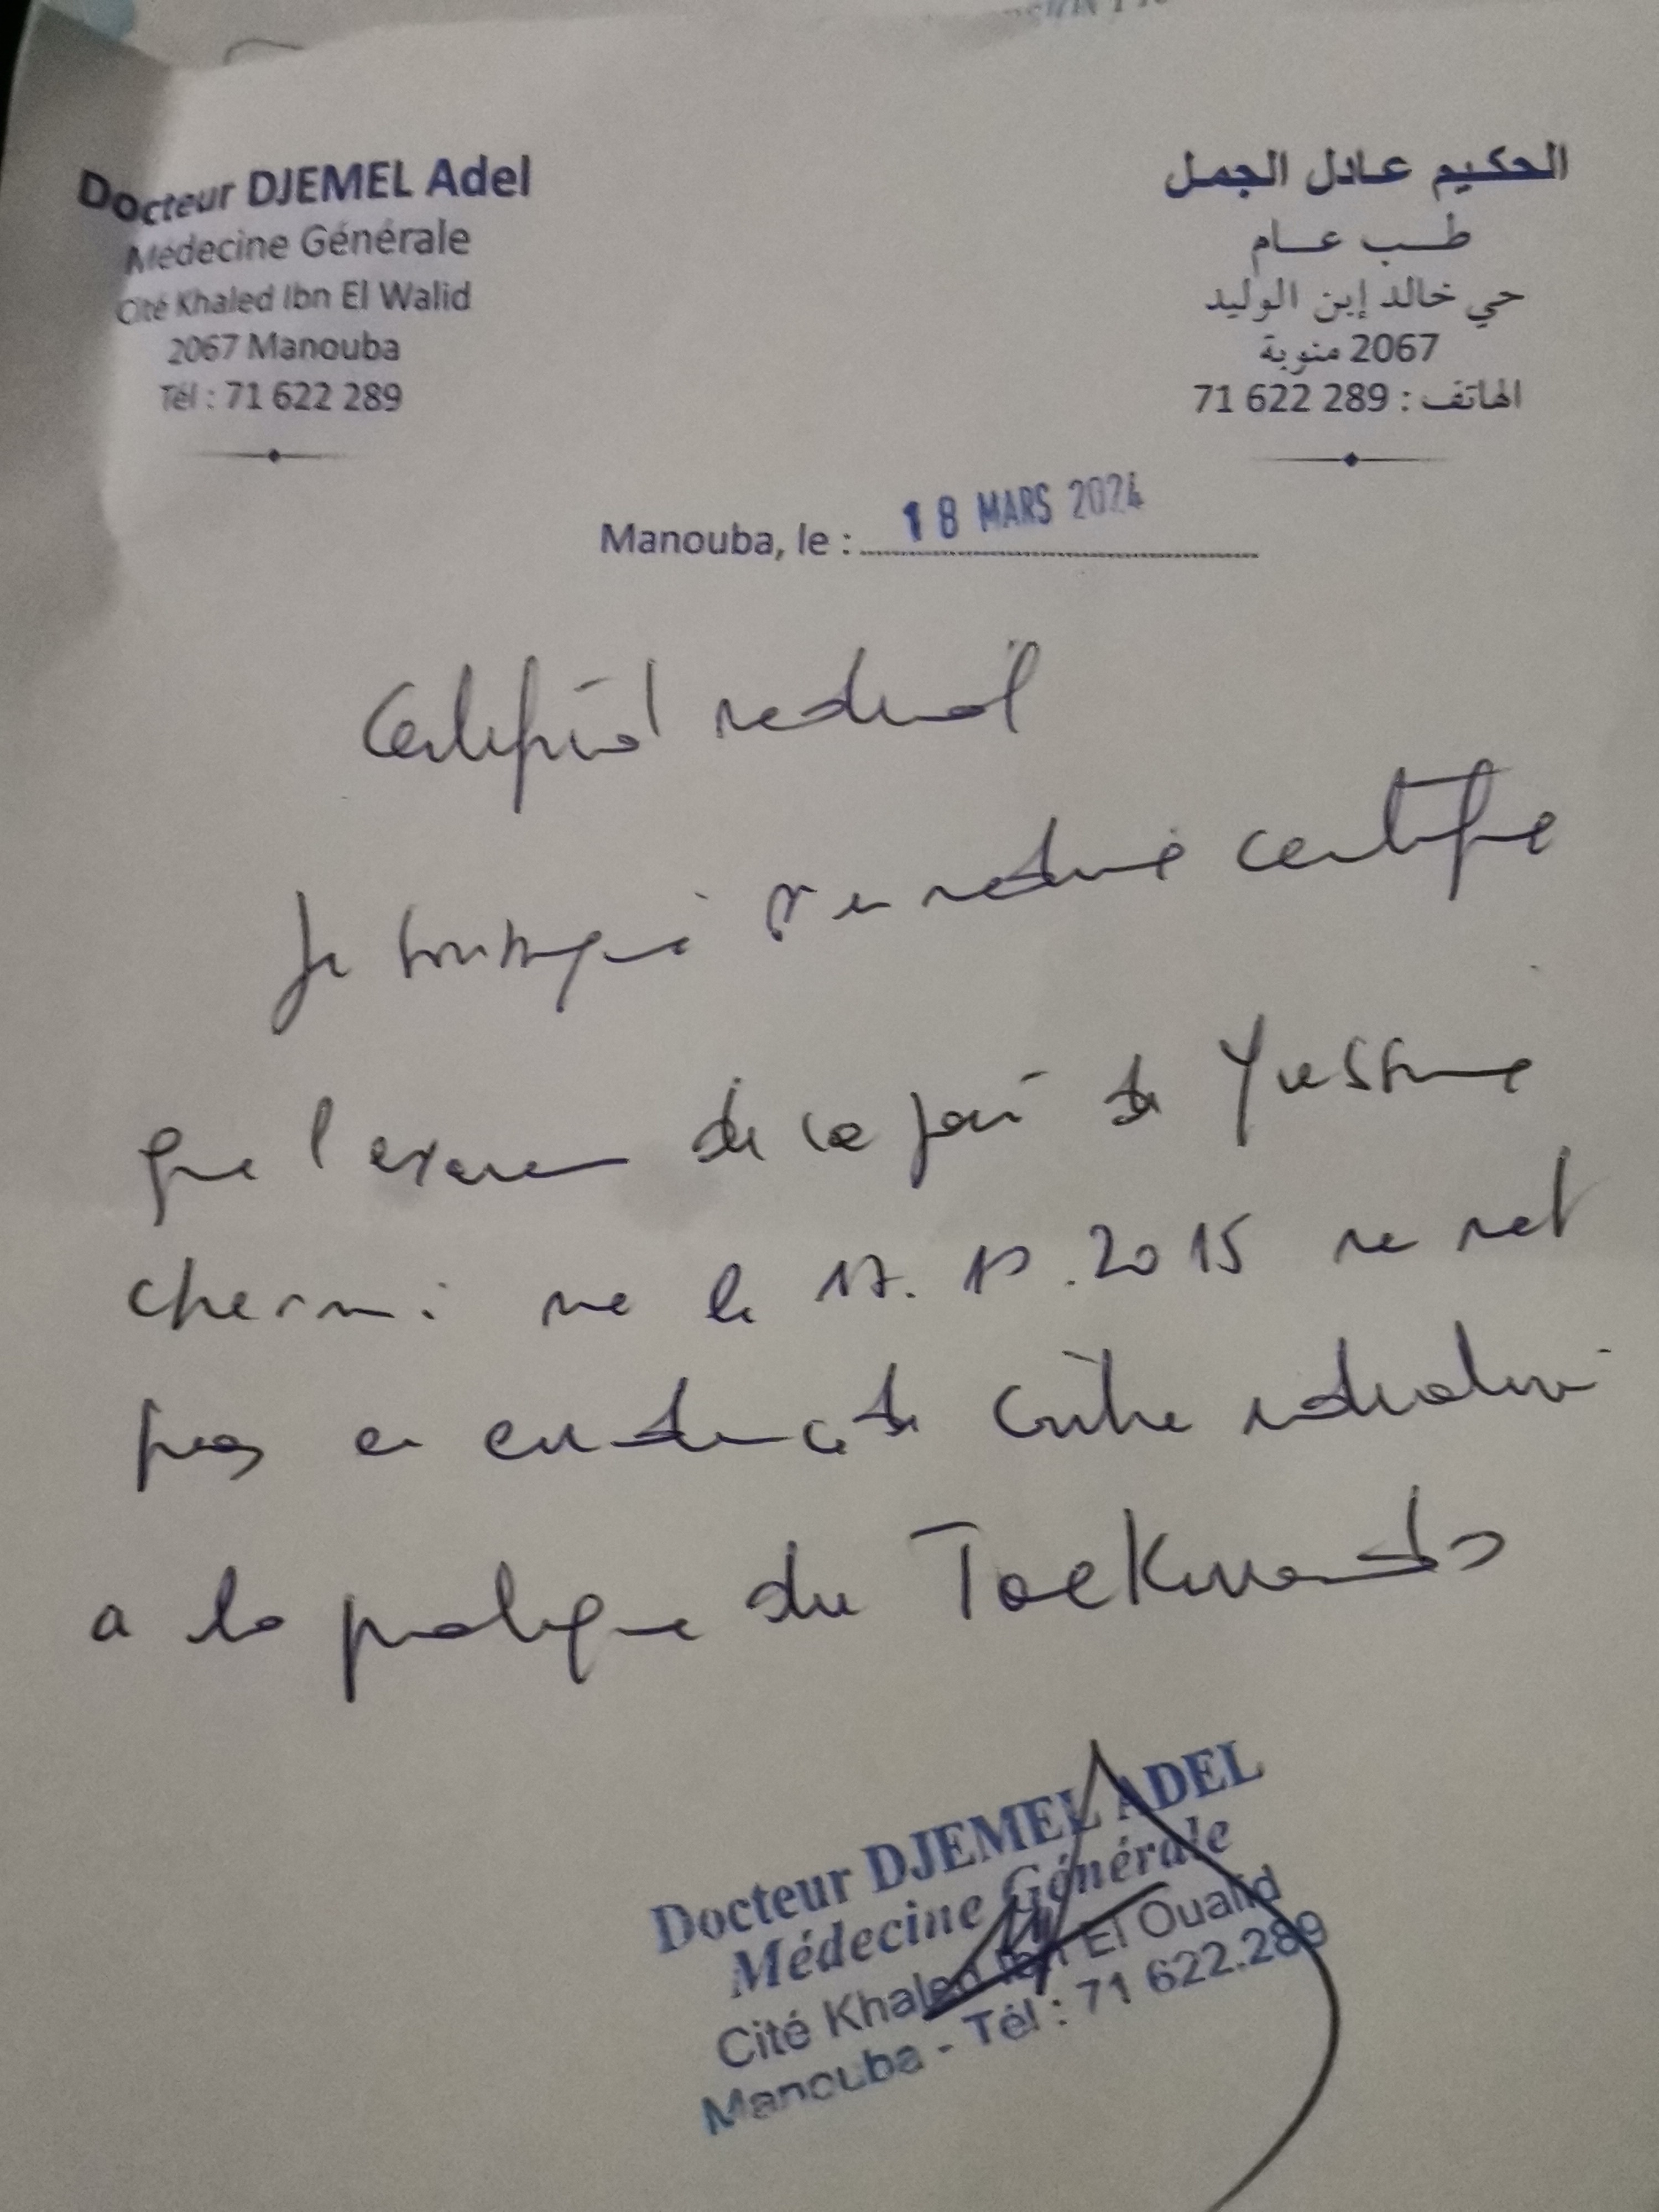 Docteur DJEMEL Adel
Médecine Générale
Cité Khaled Ibn El Walid
2067 Manouba
Tél : 71 622 289
الحكيم عادل الجمل
طب عام
حي خالد إبن الوليد
2067 منوبة
الهاتف : 71 622 289
Manouba, le : 18 MARS 2024
Certificat medical
Je soussigné en medecine certifie
que l'examen de ce jour de Yussime
Chermi: ne le 17. 10. 2015 ne met
pas en evidence de contre indication
a la pratique du Taekwando
Docteur DJEMEL ADEL
Médecine Générale
Cité Khaled Ibn El Oualid
Manouba - Tél : 71 622.289